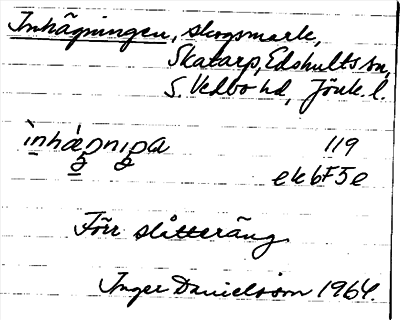 Inhägningen, skogsmark,
Skatarp, Edshults sn,
S. Vedbo hd, Jönk. l.
119
ek6F5e
Förr slåtteräng
Inger Danielsson 1964.